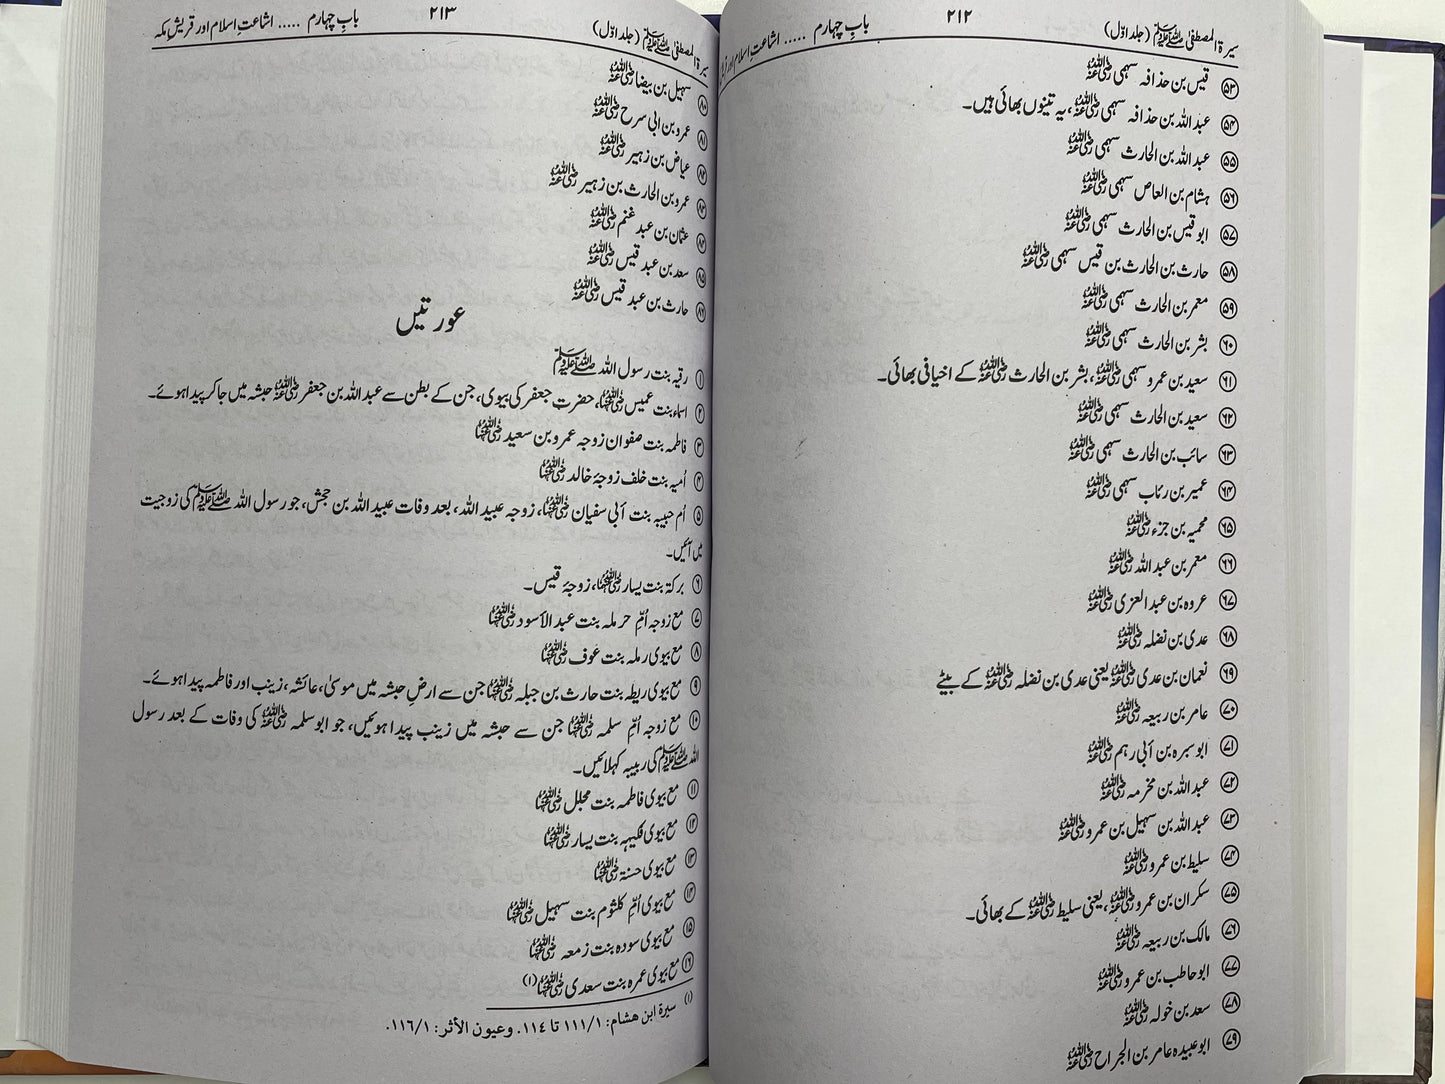 سیرۃ المصطفیٰ ﷺ (جلد اوّل)
۲۱۲
بابِ چہارم ..... اشاعتِ اسلام اور قریشِ
۵۳ قیس بن حذافہ سہمی رضی اللہ عنہ
۵۴ عبد اللہ بن حذافہ سہمی رضی اللہ عنہ، یہ تینوں بھائی ہیں۔
۵۵ عبد اللہ بن الحارث سہمی رضی اللہ عنہ
۵۶ ہشام بن العاص سہمی رضی اللہ عنہ
۵۷ ابو قیس بن الحارث سہمی رضی اللہ عنہ
۵۸ حارث بن الحارث بن قیس سہمی رضی اللہ عنہ
۵۹ معمر بن الحارث سہمی رضی اللہ عنہ
۶۰ بشر بن الحارث سہمی رضی اللہ عنہ
۶۱ سعید بن عمرو سہمی رضی اللہ عنہ، بشر بن الحارث رضی اللہ عنہ کے اخیافی بھائی۔
۶۲ سعید بن الحارث سہمی رضی اللہ عنہ
۶۳ سائب بن الحارث سہمی رضی اللہ عنہ
۶۴ عمیر بن رئاب سہمی رضی اللہ عنہ
۶۵ محمیہ بن جزء رضی اللہ عنہ
۶۶ معمر بن عبد اللہ رضی اللہ عنہ
۶۷ عروہ بن عبد العزی رضی اللہ عنہ
۶۸ عدی بن نضلہ رضی اللہ عنہ
۶۹ نعمان بن عدی رضی اللہ عنہ یعنی عدی بن نضلہ رضی اللہ عنہ کے بیٹے
۷۰ عامر بن ربیعہ رضی اللہ عنہ
۷۱ ابو سبرہ بن أبی رہم رضی اللہ عنہ
۷۲ عبد اللہ بن مخرمہ رضی اللہ عنہ
۷۳ عبد اللہ بن سہیل بن عمرو رضی اللہ عنہ
۷۴ سلیط بن عمرو رضی اللہ عنہ
۷۵ سکران بن عمرو رضی اللہ عنہ، یعنی سلیط رضی اللہ عنہ کے بھائی۔
۷۶ مالک بن ربیعہ رضی اللہ عنہ
۷۷ ابو حاطب بن عمرو رضی اللہ عنہ
۷۸ سعد بن خولہ رضی اللہ عنہ
۷۹ ابو عبیدہ عامر بن الجراح رضی اللہ عنہ
سیرۃ المصطفیٰ ﷺ (جلد اوّل)
۲۱۳
بابِ چہارم ..... اشاعتِ اسلام اور قریشِ مکہ
۸۰ سہیل بن بیضا رضی اللہ عنہ
۸۱ عمرو بن ابی سرح رضی اللہ عنہ
۸۲ عیاض بن زہیر رضی اللہ عنہ
۸۳ عمرو بن الحارث بن زہیر رضی اللہ عنہ
۸۴ عثمان بن عبد غنم رضی اللہ عنہ
۸۵ سعد بن عبد قیس رضی اللہ عنہ
۸۶ حارث بن عبد قیس رضی اللہ عنہ
عورتیں
۱ رقیہ بنت رسول اللہ ﷺ
۲ اسماء بنت عمیس رضی اللہ عنہا، حضرتِ جعفر کی بیوی، جن کے بطن سے عبد اللہ بن جعفر رضی اللہ عنہ حبشہ میں جا کر پیدا ہوئے۔
۳ فاطمہ بنت صفوان زوجہ عمرو بن سعید رضی اللہ عنہا
۴ اُمیہ بنت خلف زوجۂ خالد رضی اللہ عنہا
۵ اُم حبیبہ بنت أبی سفیان رضی اللہ عنہا، زوجہ عبید اللہ، بعد وفات عبید اللہ بن جحش، جو رسول اللہ ﷺ کی زوجیت
میں آئیں۔
۶ برکۃ بنت یسار رضی اللہ عنہا، زوجۂ قیس۔
۷ مع زوجہ اُمِّ حرملہ بنت عبد الأسود رضی اللہ عنہا
۸ مع بیوی رملہ بنت عوف رضی اللہ عنہا
۹ مع بیوی ریطہ بنت حارث بن جبلہ رضی اللہ عنہا جن سے ارضِ حبشہ میں موسیٰ، عائشہ، زینب اور فاطمہ پیدا ہوئے۔
۱۰ مع زوجہ اُمِّ سلمہ رضی اللہ عنہا جن سے حبشہ میں زینب پیدا ہوئیں، جو ابو سلمہ رضی اللہ عنہ کی وفات کے بعد رسول
اللہ ﷺ کی ربیبہ کہلائیں۔
۱۱ مع بیوی فاطمہ بنت مجلل رضی اللہ عنہا
۱۲ مع بیوی فکیہہ بنت یسار رضی اللہ عنہا
۱۳ مع بیوی حسنۃ رضی اللہ عنہا
۱۴ مع بیوی اُمِّ کلثوم بنت سہیل رضی اللہ عنہا
۱۵ مع بیوی سودہ بنت زمعہ رضی اللہ عنہا
۱۶ مع بیوی عمرہ بنت سعدی رضی اللہ عنہا (۱)
(۱) سیرۃ ابن ھشام: ۱/۱۱۱ تا ۱۱٤. وعیون الأثر: ۱/۱۱٦.